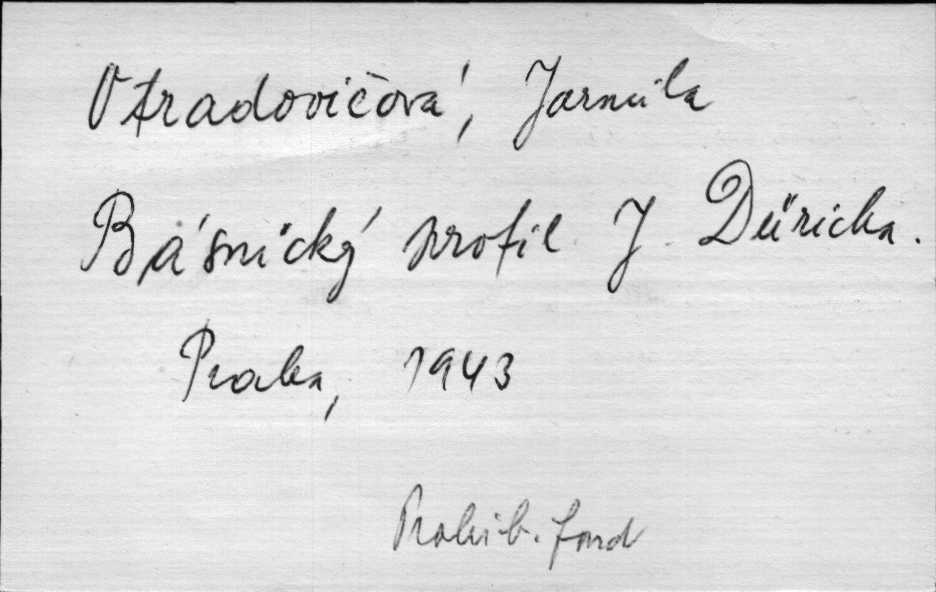 Otradovičová, Jarmila
Básnický profil J. Düricha.
Praha, 1943
Prohib. fond